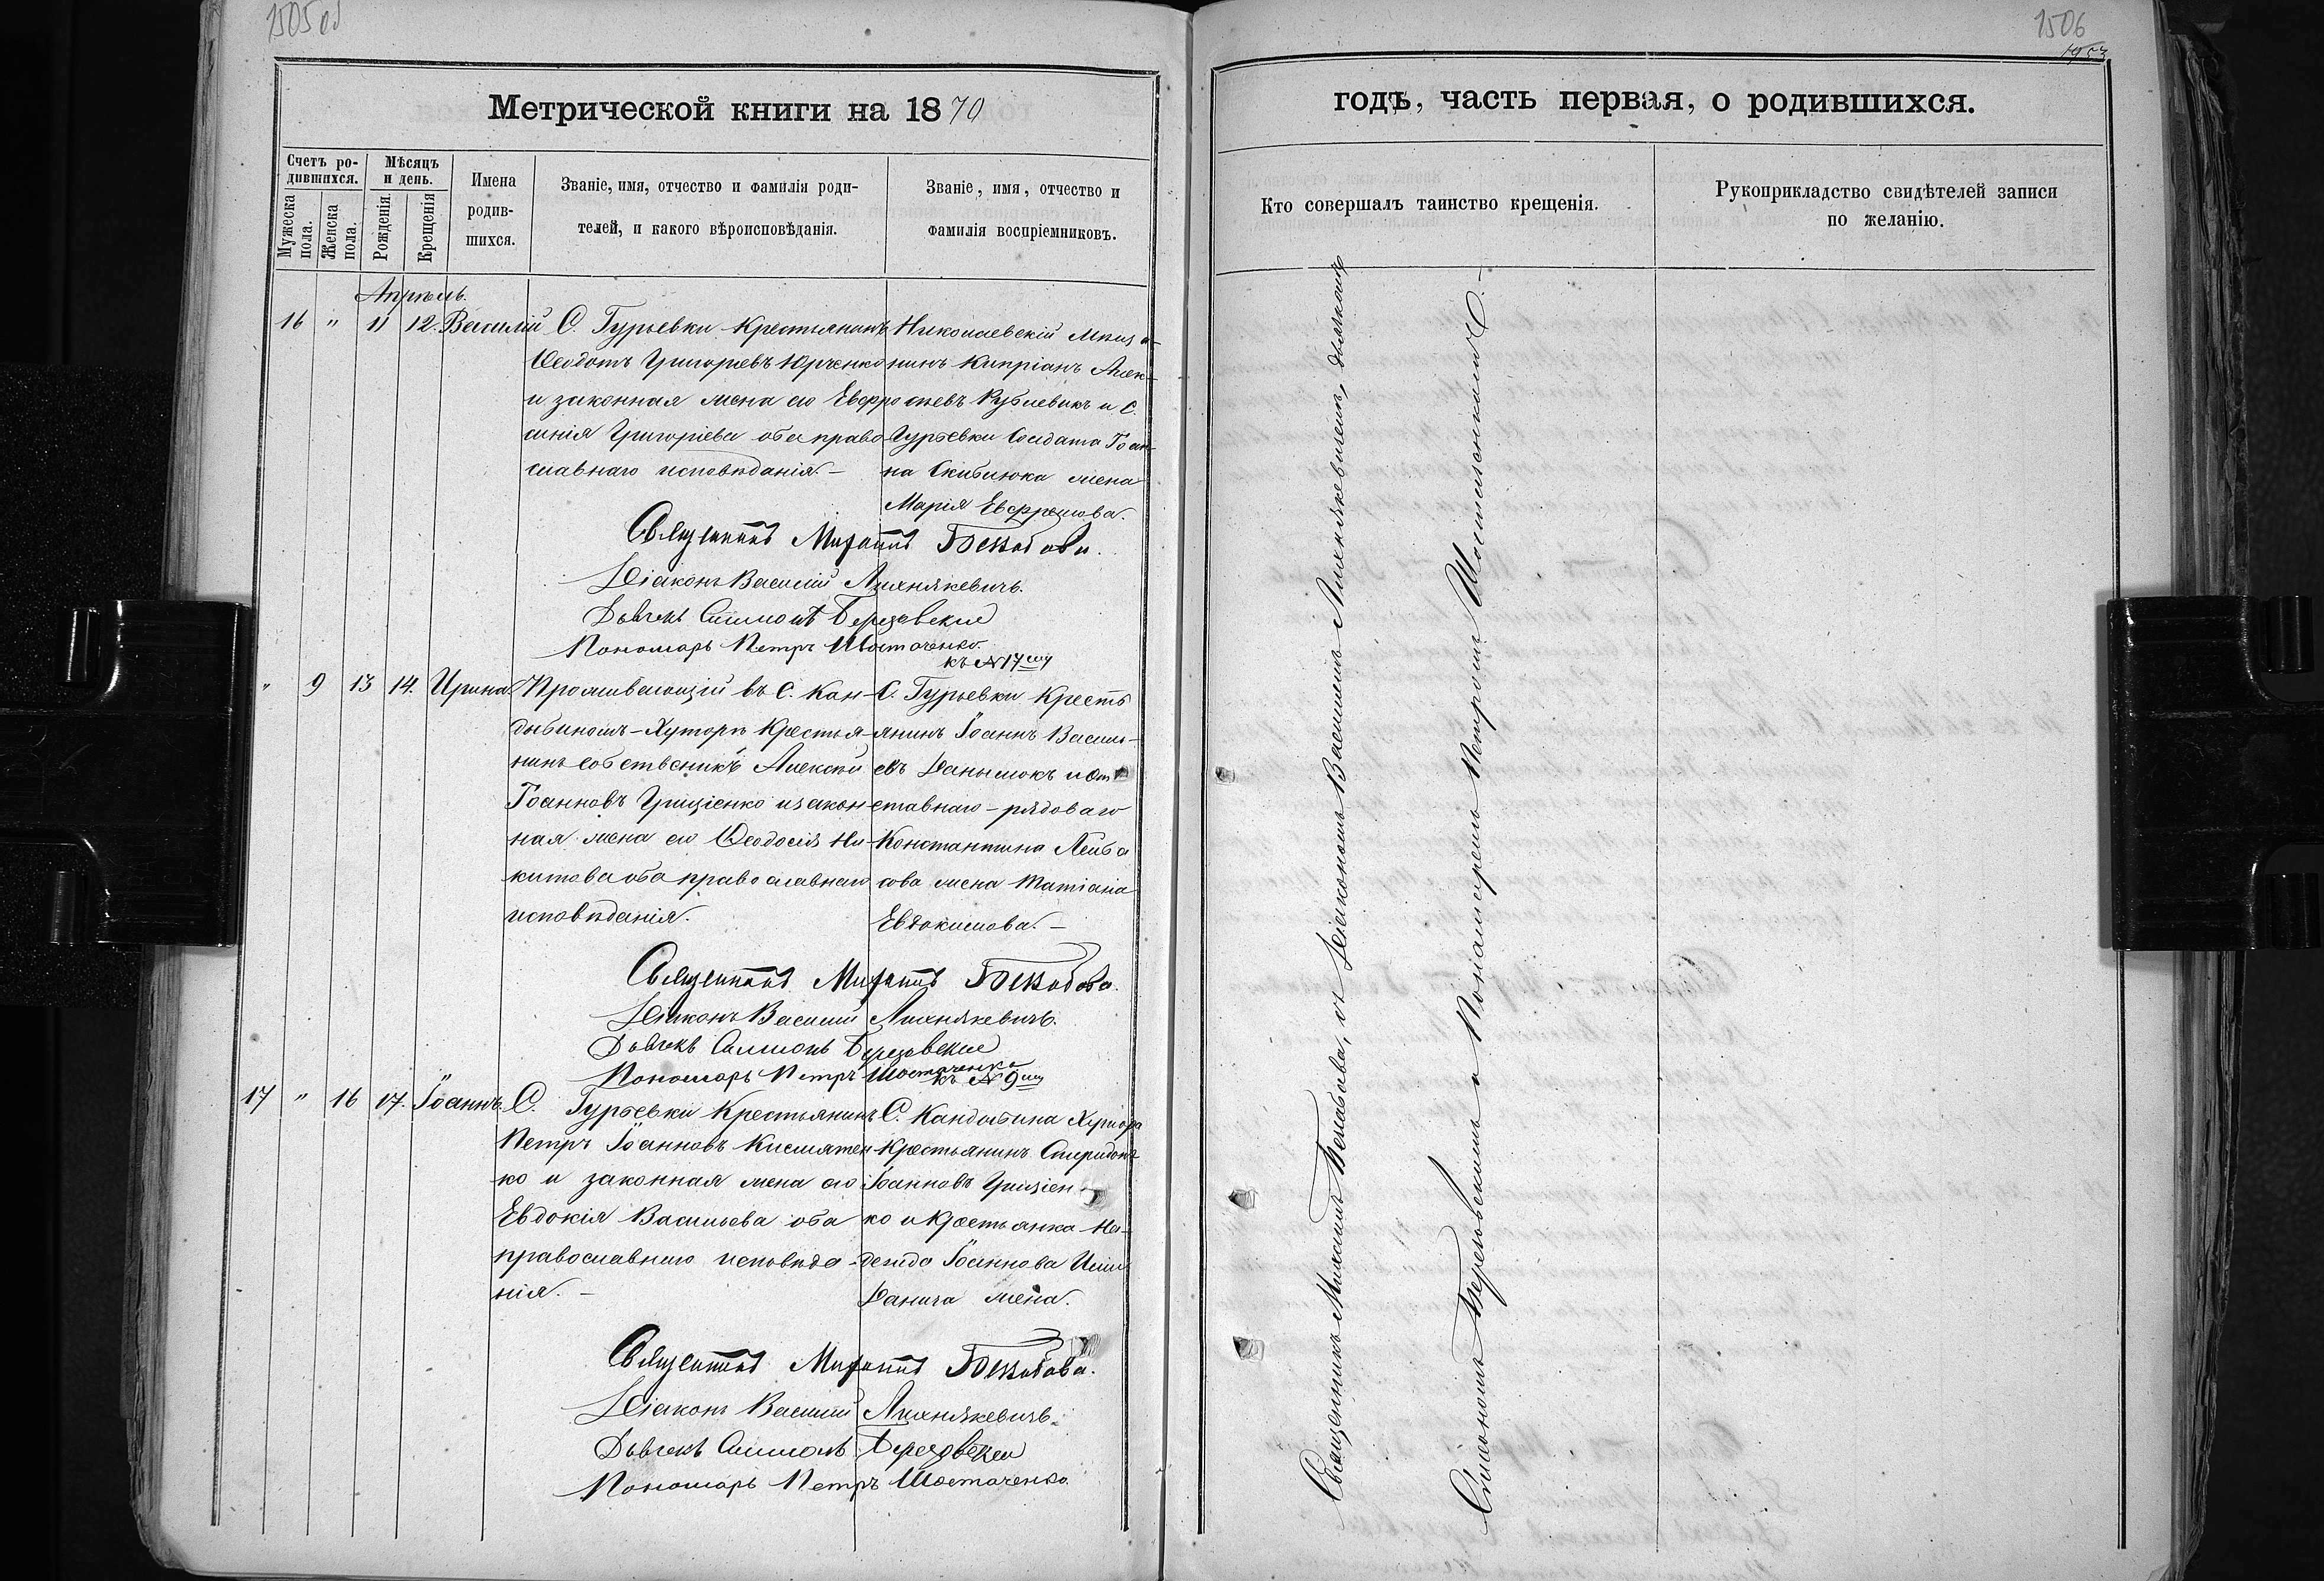 1505 об
Метрической книги на 1870
Счетъ ро-
дившихся.
Мѣсяцъ
и день.
Мужеска
пола.
Женска
пола.
Рожденія.
Крещенія
Имена
родив-
шихся.
Званіе, имя, отчество и фамилія роди-
телей, и какого вѣроисповѣданія.
Званіе, имя, отчество и
фамилія воспріемниковъ.
Апрѣль.
16 " 11 12. Василій
С. Гурьевки Крестьянинъ
Ѳеодотъ Григорьевъ Юрченко
и законная жена его Евфро
синія Григоріева оба право
славнаго исповѣданія. –
Николаевскій Мѣща-
нинъ Кипріанъ Алек-
сѣевъ и С.
Гурьевки Солдата Іоан-
на жена
Марія
Священникъ Михаилъ
Діаконъ Василій Лихнякевичъ.
Дьячекъ Симеонъ Березовскій
Пономарь Петръ Шостаченко.
къ № 17му
" 9 13 14. Ирина.
Проживающій въ С. Кан-
дыбиномъ-Хуторѣ Крестья-
нинъ собственникъ Алексѣй
Іоанновъ Гриціенко и закон-
ная жена его Ѳеодосія Ни-
китова оба православнаго
исповѣданія.
С. Гурьевки Кресть
янинъ Іоаннъ Василь-
евъ и От
ставнаго-рядоваго
Константина
жена Татіана
Евдокимова. –
Священникъ Михаилъ
Діаконъ Василій Лихнякевичъ.
Дьячекъ Симеонъ Березовскій
Пономарь Петръ Шостаченко
къ № 9му
17 " 16 17. Іоаннъ.
С. Гурьевки Крестьянинъ
Петръ Іоанновъ
ко и законная жена его
Евдокія Васильева оба
православнаго исповѣда-
нія. –
С. Кандыбина Хутора
Крестьянинъ Спиридонъ
Іоанновъ Гриціен-
ко и Крестьянка На-
дежда Іоаннова
жена.
Священникъ Михаилъ
Діаконъ Василій Лихнякевичъ.
Дьячекъ Симеонъ Березовскій
Пономарь Петръ Шостаченко
1506
1953
годъ, часть первая, о родившихся.
Кто совершалъ таинство крещенія.
Рукоприкладство свидѣтелей записи
по желанію.
Священникъ Михаилъ съ Діакономъ Василіемъ Лихнякевичемъ, дьячкомъ
Симеономъ Березовскимъ и Пономаремъ Петромъ